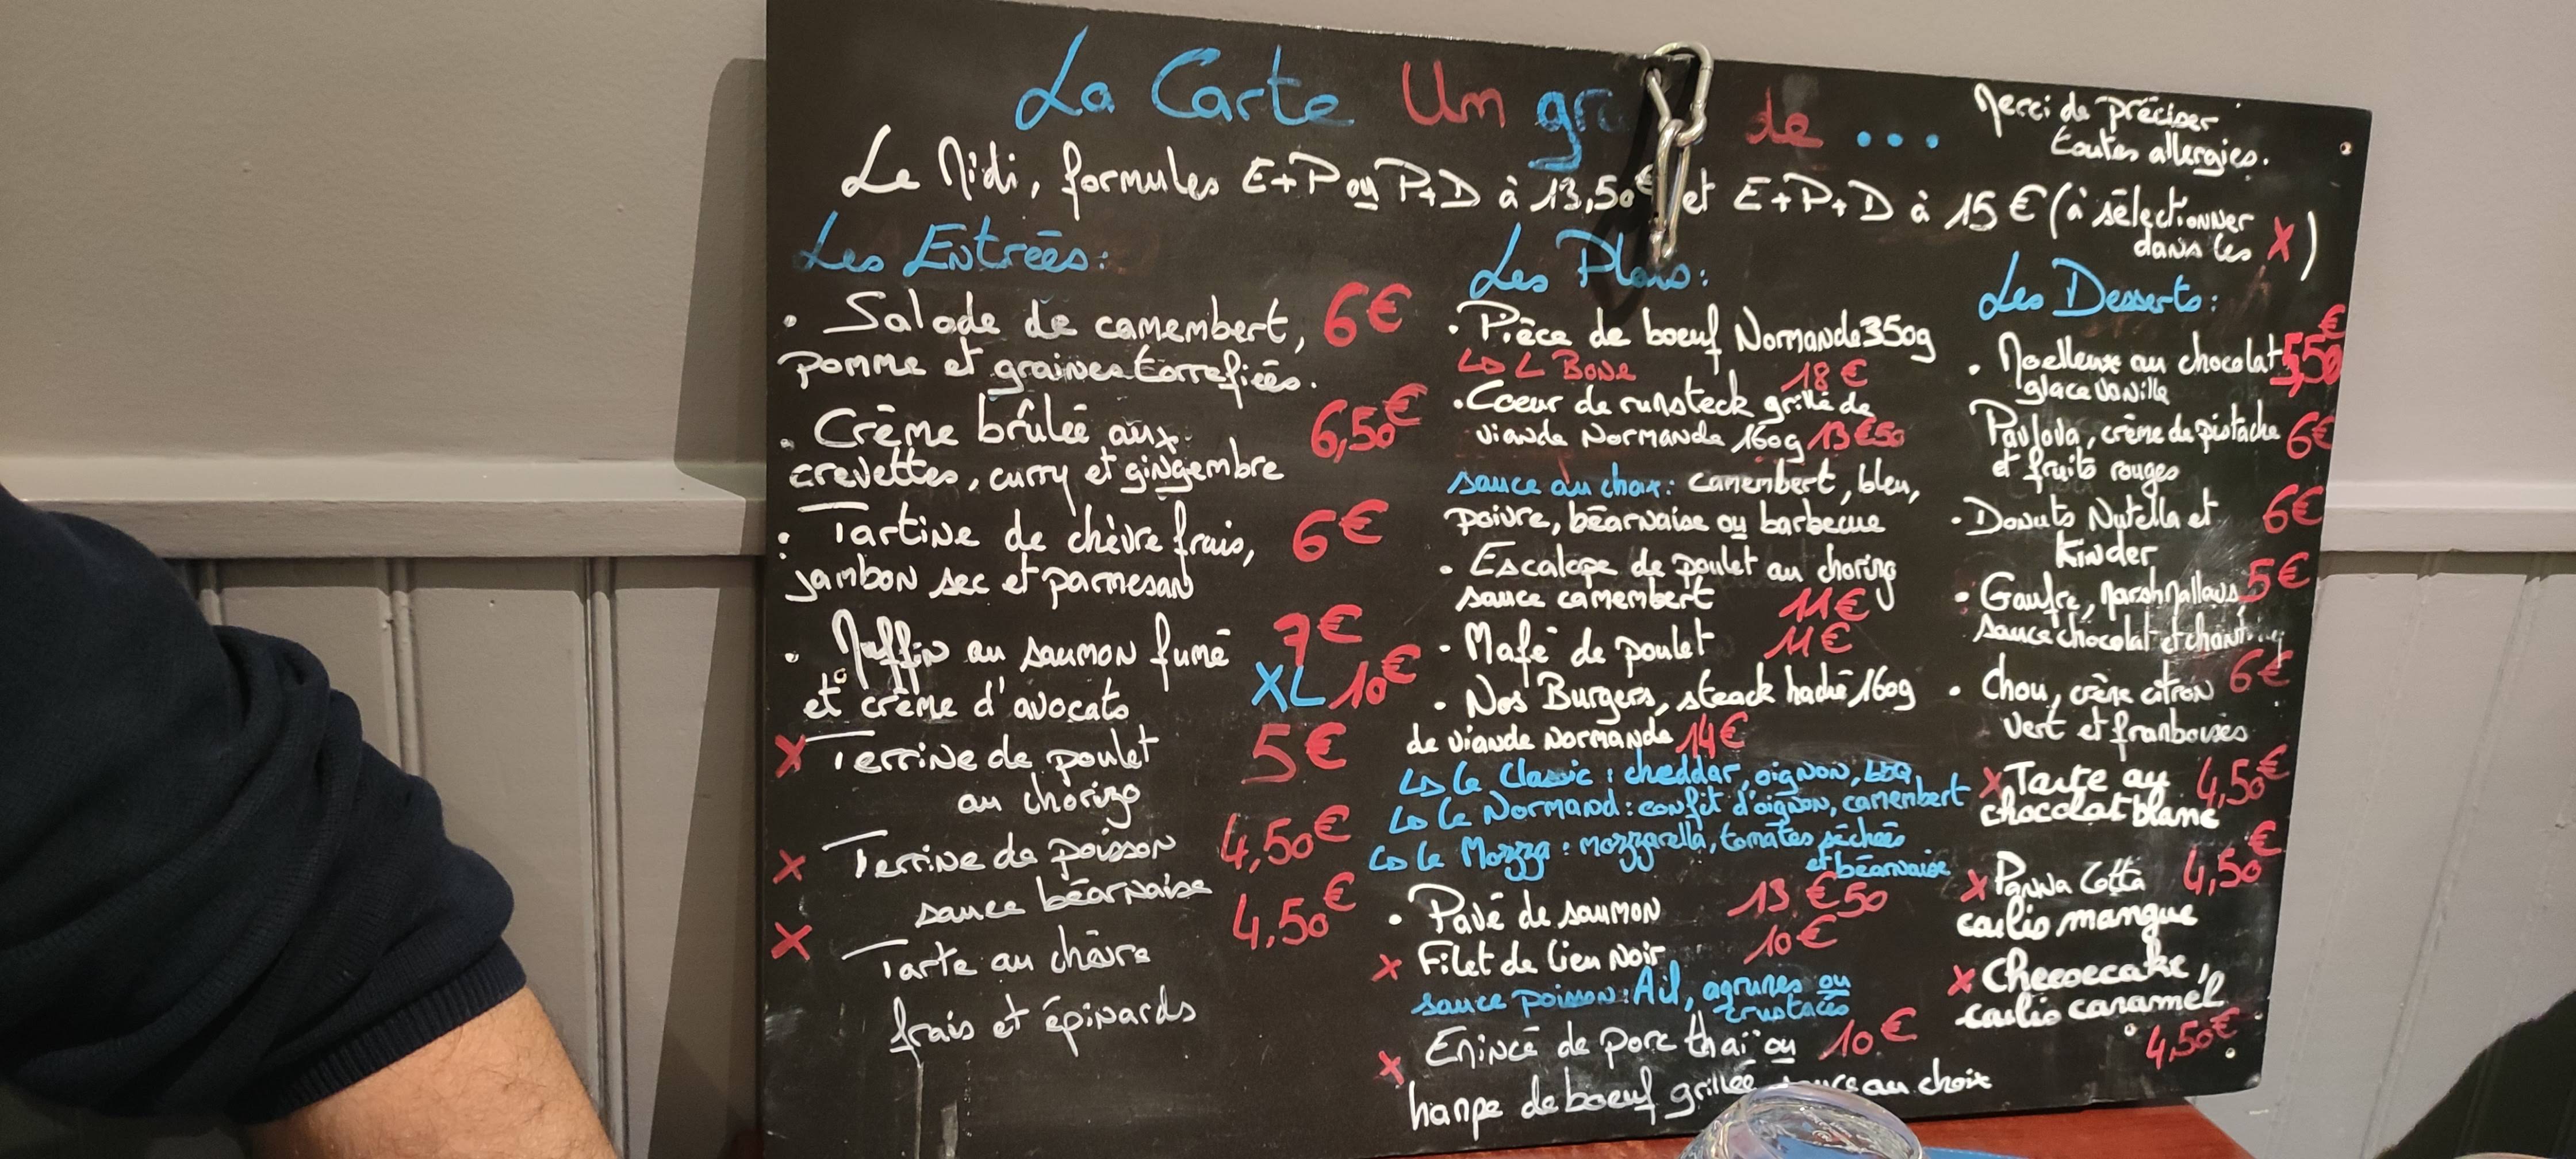 La Carte Un gr de ...
Merci de préciser
toutes allergies.
Le Midi, formules E+P ou P+D à 13,50€ et E+P+D à 15€ (à sélectionner
dans les X)
Les Entrées:
• Salade de camembert, 6€
pomme et graines torréfiées.
• Crème brûlée aux 6,50€
crevettes, curry et gingembre
• Tartine de chèvre frais, 6€
jambon sec et parmesan
• Muffin au saumon fumé 7€
et crème d'avocats XL 10€
X Terrine de poulet 5€
au chorizo
X Terrine de poisson 4,50€
sauce béarnaise
X Tarte au chèvre 4,50€
frais et épinards
Les Plats:
• Pièce de boeuf Normande 350g
↳ L Bone 18€
• Coeur de rumsteck grillé de
viande Normande 160g 13€50
sauce au choix: camembert, bleu,
poivre, béarnaise ou barbecue
• Escalope de poulet au chorizo
sauce camembert 11€
• Mafé de poulet 11€
• Nos Burgers, steack haché 160g
de viande normande 14€
↳ Le Classic: cheddar, oignon, BBQ
↳ Le Normand: confit d'oignon, camembert
↳ Le Mozza: mozzarella, tomates séchées
et béarnaise
• Pavé de saumon 13€50
X Filet de lieu noir 10€
sauce poisson: Ail, agrumes ou
crustacés
X Emincé de porc thaï ou 10€
hampe de boeuf grillée sauce au choix
Les Desserts:
• Moelleux au chocolat 5,50€
glace vanille
Pavlova, crème de pistache 6€
et fruits rouges
• Donuts Nutella et 6€
Kinder
• Gaufre, marshmallows 5€
sauce chocolat et chantilly
• Chou, crème citron 6€
vert et framboises
X Tarte au 4,50€
chocolat blanc
X Panna Cotta 4,50€
coulis mangue
X Cheesecake,
coulis caramel
4,50€